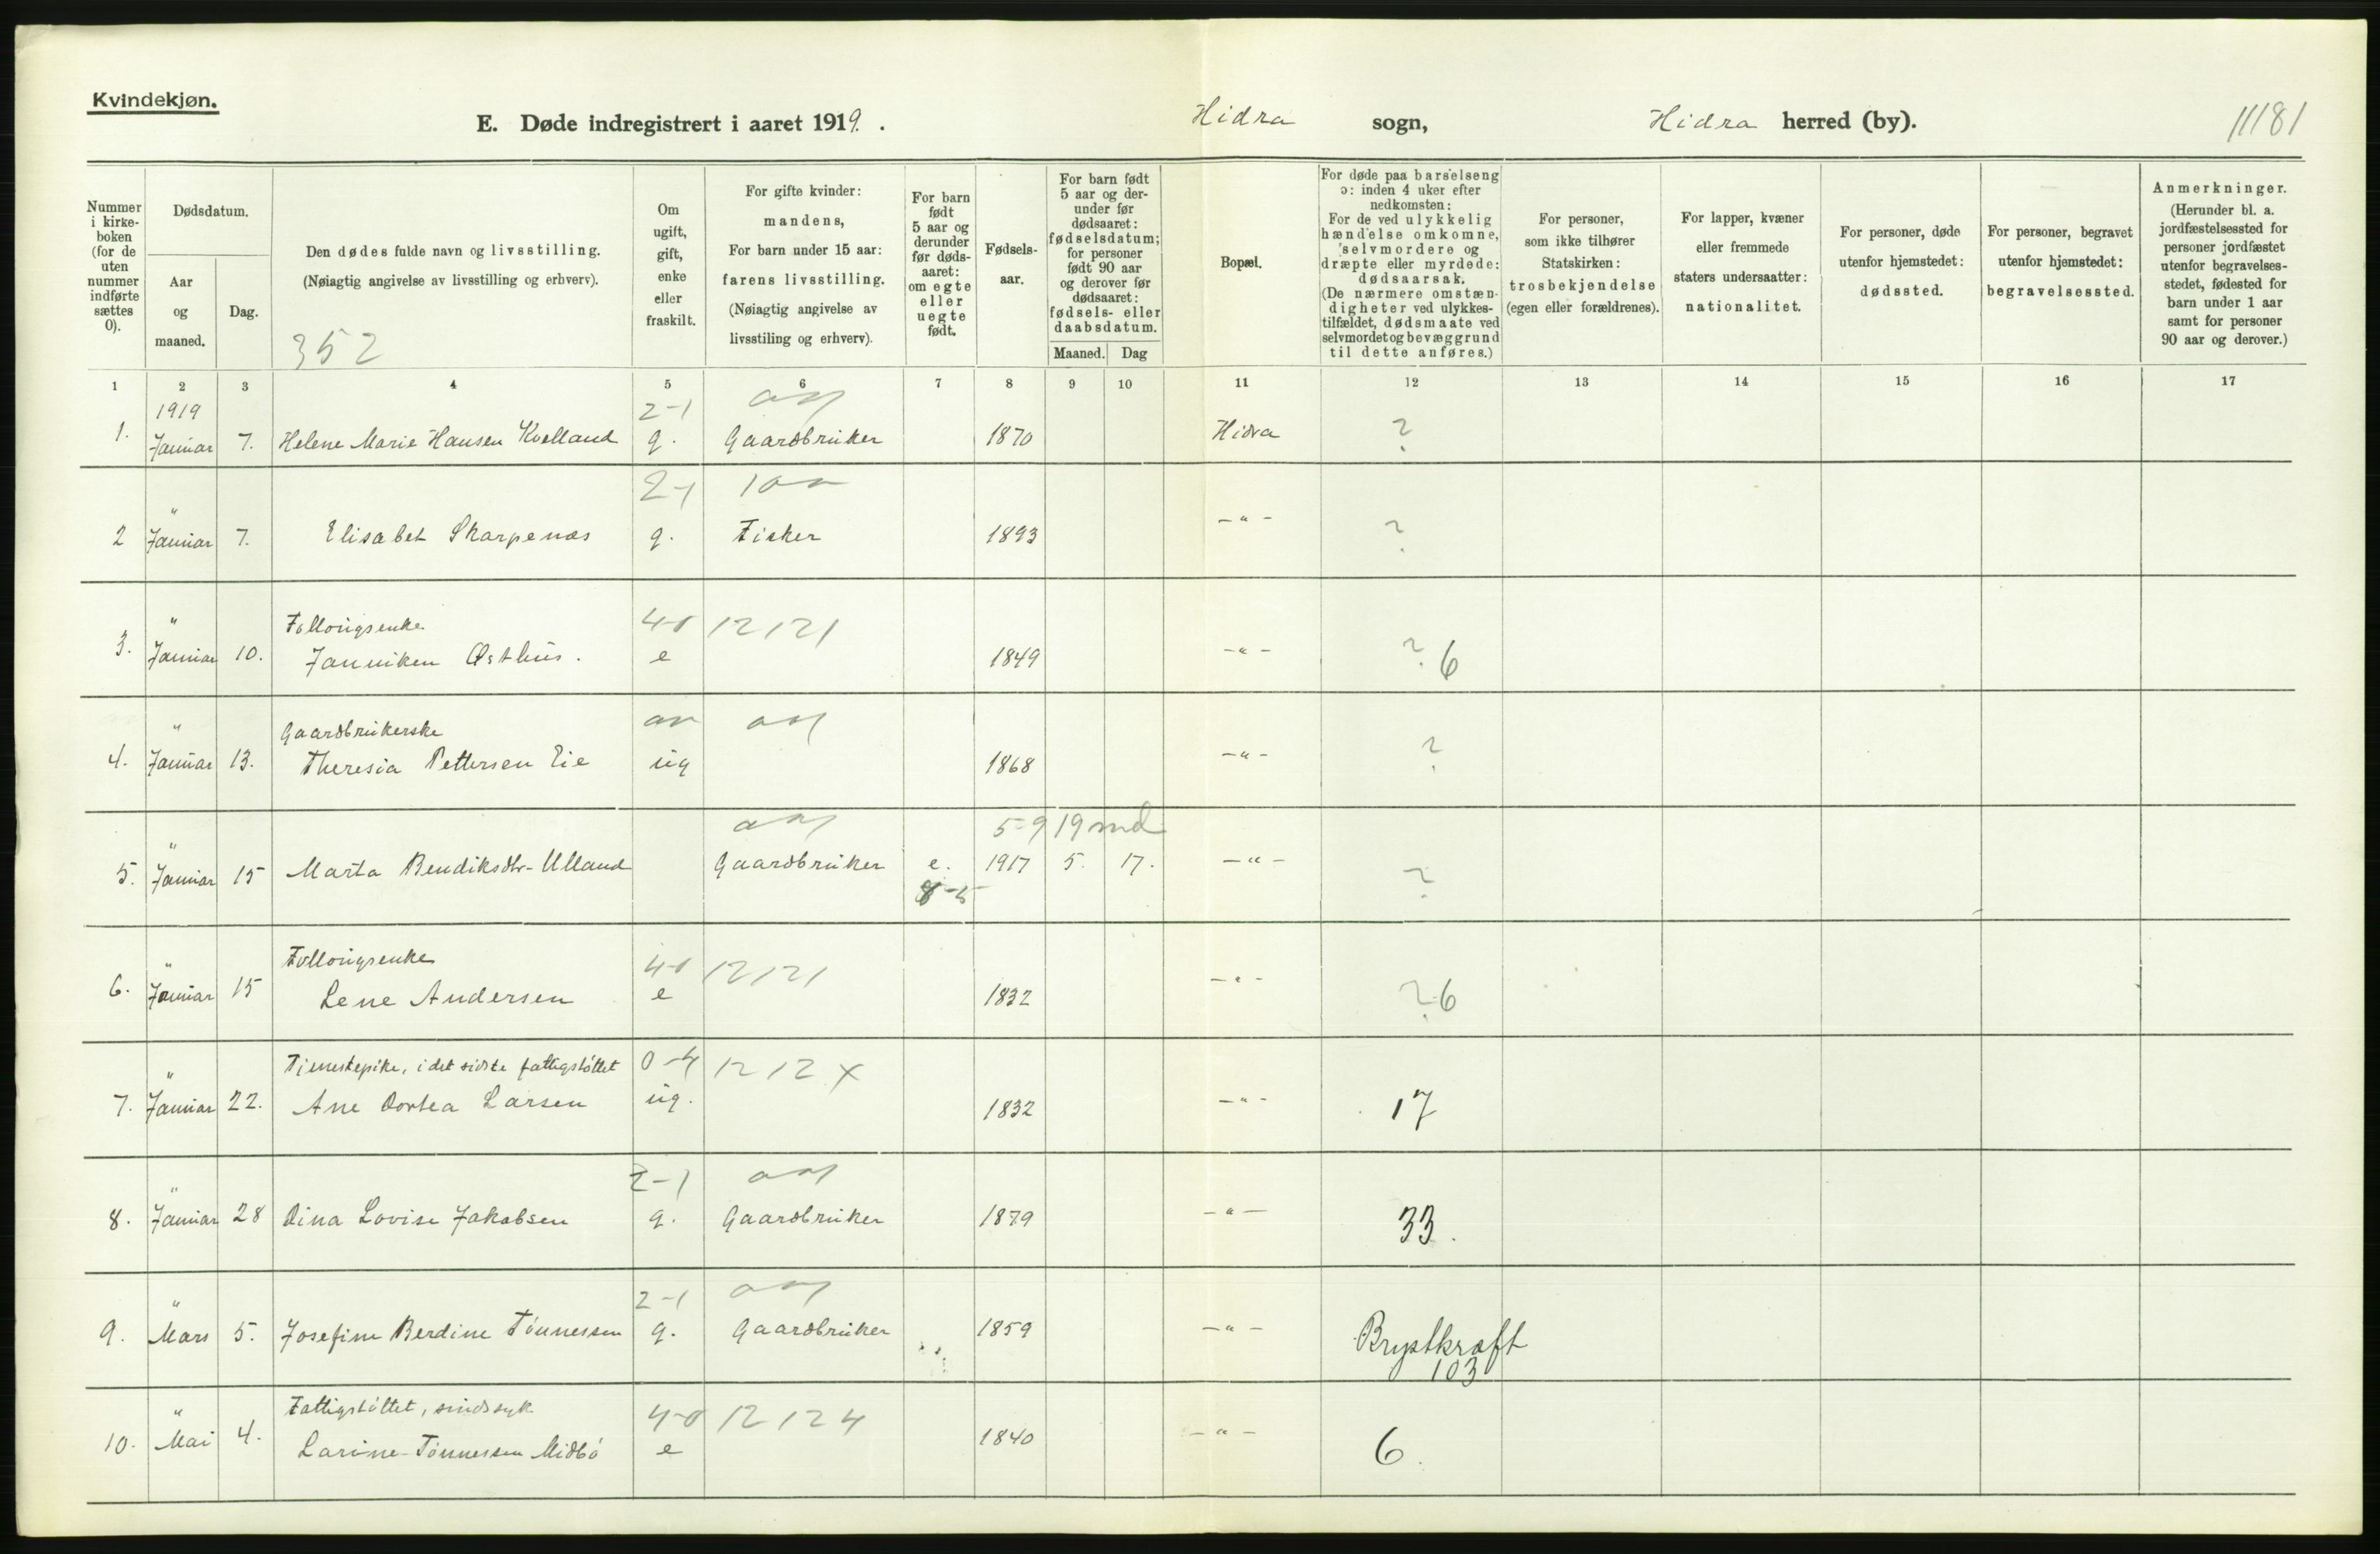 Kvindekjøn.
E. Døde indregistrert i aaret 1919. Hidra sogn, Hidra herred (by). 11181
Nummer i kirke-boken (for de uten nummer indførte sættes 0).
Dødsdatum.
Aar og maaned.
Dag.
Den dødes fulde navn og livsstilling.
(Nøiagtig angivelse av livsstilling og erhverv).
352
Om ugift, gift, enke eller fraskilt.
For gifte kvinder: mandens,
For barn under 15 aar: farens livsstilling.
(Nøiagtig angivelse av livsstiling og erhverv).
For barn født 5 aar og derunder før døds-aaret: om egte eller uegte født.
Fødsels-aar.
For barn født 5 aar og der-under før dødsaaret: fødselsdatum; for personer født 90 aar og derover før dødsaaret: fødsels- eller daabsdatum.
Maaned. Dag
Bopæl.
For døde paa barselseng ɔ: inden 4 uker efter nedkomsten:
For de ved ulykkelig hændelse omkomne, selvmordere og dræpte eller myrdede: dødsaarsak.
(De nærmere omstæn-digheter ved ulykkes-tilfældet, dødsmaate ved selvmordet og bevæggrund til dette anføres.)
For personer, som ikke tilhører Statskirken: trosbekjendelse (egen eller forældrenes).
For lapper, kvæner eller fremmede staters undersaatter: nationalitet.
For personer, døde utenfor hjemstedet: dødssted.
For personer, begravet utenfor hjemstedet: begravelsessted.
Anmerkninger.
(Herunder bl. a. jordfæstelsessted for personer jordfæstet utenfor begravelses-stedet, fødested for barn under 1 aar samt for personer 90 aar og derover.)
1 2 3 4 5 6 7 8 9 10 11 12 13 14 15 16 17
1919 2-1
1. Januar 7. Helene Marie Hansen Kvelland g. Gaardbruker 1870 Hidra ?
" 2-1
2 Januar 7. Elisabet Skarpenæs g. Fisker 1893 -"- ?
" Føllougsenke 4-0 12121
3. Januar 10. Janniken Østhus. e 1849 -"- ? 6
" Gaardbrukerske
4. Januar 13. Theresia Pettersen Eie ug 1868 -"- ?
" 5-9 19 md
5. Januar 15 Marta Bendiksdtr. Ulland Gaardbruker e. 1917 5. 17. -"- ?
8-5
" Føllougsenke 4-0 12121
6. Januar 15 Lene Andersen e 1832 -"- ? 6
" Tjenestepike, i det sidste fattigstøttet 0-4 1212 x
7. Januar 22. Ane Dortea Larsen ug. 1832 -"- 17
" 2-1
8. Januar 28 Dina Lovise Jakobsen g. Gaardbruker 1879 -"- 33.
" 2-1
9. Mars 5. Josefine Berdine Tønnessen g. Gaardbruker 1859 -"- Brystkræft
103
" Fattigstøttet, sindssyk 4-0 12124
10. Mai 4. Larine Tønnessen Midbø e 1840 -"- 6.